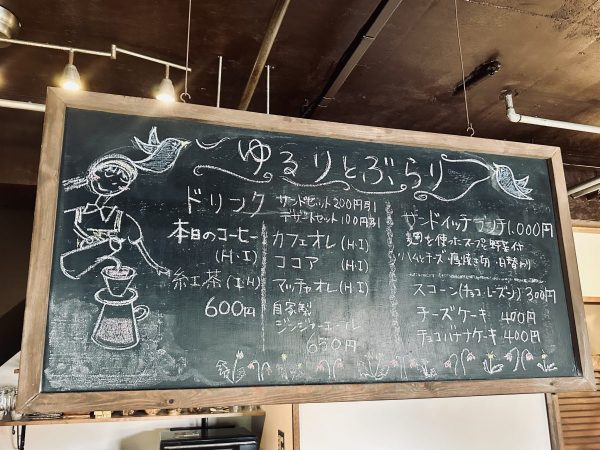 ゆるりとぶらり
ドリンク
サンドセット200円引
デザートセット100円引
本日のコーヒー
(H・I)
紅茶(I・H)
600円
カフェオレ(H・I)
ココア(H・I)
マッチャオレ(H・I)
自家製
ジンジャーエール
650円
サンドイッチランチ1,000円
を使ったスープと野菜付
(ハムチーズ・ ・日替り)
スコーン(チョコ・レーズン)300円
チーズケーキ 400円
チョコバナナケーキ 400円